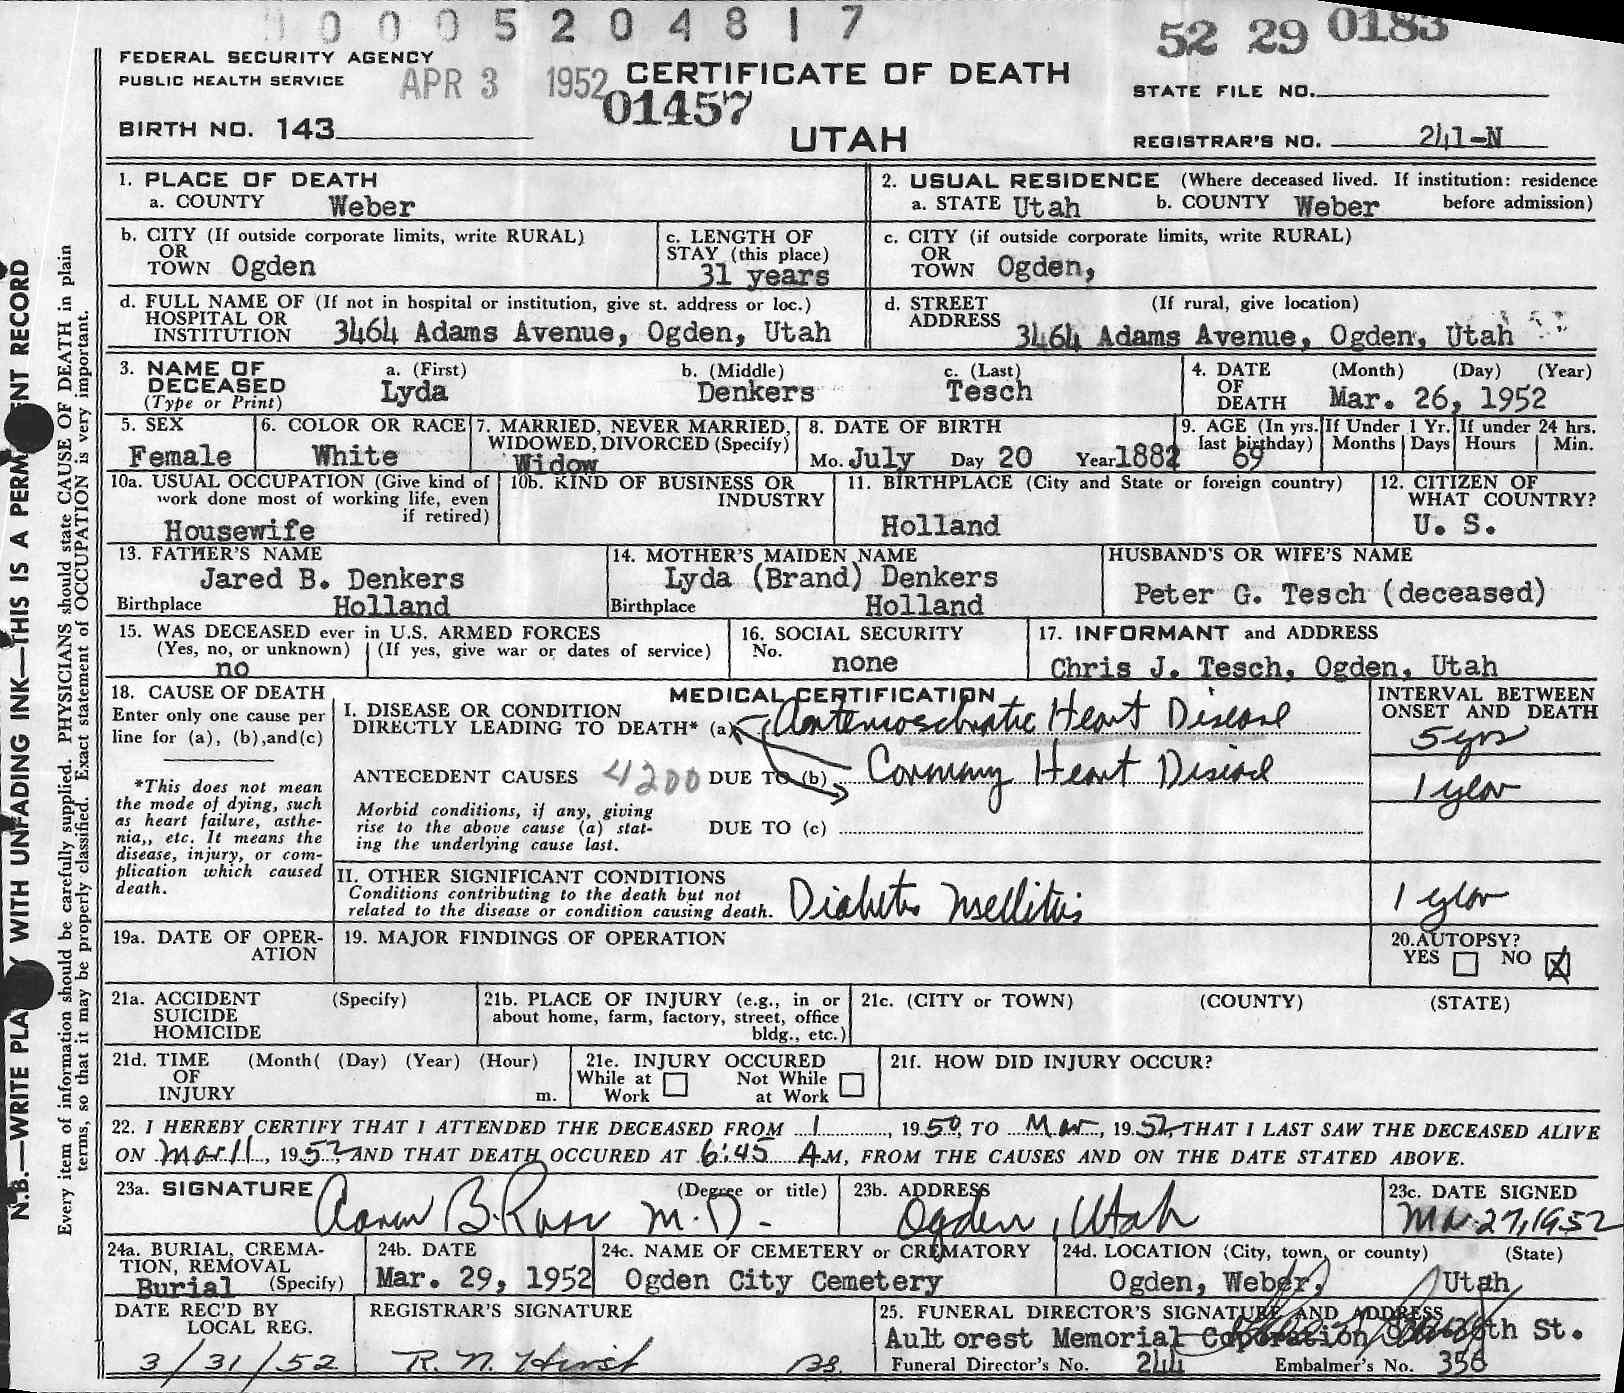 0 0 0 0 5 2 0 4 8 1 7
52 29 0183
FEDERAL SECURITY AGENCY
PUBLIC HEALTH SERVICE
APR 3 1952
CERTIFICATE OF DEATH
01457
UTAH
STATE FILE NO.
BIRTH NO. 143
REGISTRAR'S NO. 241-N
1. PLACE OF DEATH
a. COUNTY Weber
2. USUAL RESIDENCE (Where deceased lived. If institution: residence
a. STATE Utah b. COUNTY Weber before admission)
b. CITY (If outside corporate limits, write RURAL)
OR
TOWN Ogden
c. LENGTH OF
STAY (this place)
31 years
c. CITY (if outside corporate limits, write RURAL)
OR
TOWN Ogden,
d. FULL NAME OF (If not in hospital or institution, give st. address or loc.)
HOSPITAL OR
INSTITUTION 3464 Adams Avenue, Ogden, Utah
d. STREET (If rural, give location)
ADDRESS 3464 Adams Avenue, Ogden, Utah
3. NAME OF
DECEASED
(Type or Print)
a. (First)
Lyda
b. (Middle)
Denkers
c. (Last)
Tesch
4. DATE (Month) (Day) (Year)
OF
DEATH Mar. 26, 1952
5. SEX
Female
6. COLOR OR RACE
White
7. MARRIED, NEVER MARRIED,
WIDOWED, DIVORCED (Specify)
Widow
8. DATE OF BIRTH
Mo. July Day 20 Year 1882
9. AGE (In yrs.
last birthday)
69
If Under 1 Yr.
Months Days
If under 24 hrs.
Hours Min.
10a. USUAL OCCUPATION (Give kind of
work done most of working life, even
if retired)
Housewife
10b. KIND OF BUSINESS OR
INDUSTRY
11. BIRTHPLACE (City and State or foreign country)
Holland
12. CITIZEN OF
WHAT COUNTRY?
U. S.
13. FATHER'S NAME
Jared B. Denkers
Birthplace Holland
14. MOTHER'S MAIDEN NAME
Lyda (Brand) Denkers
Birthplace Holland
HUSBAND'S OR WIFE'S NAME
Peter G. Tesch (deceased)
15. WAS DECEASED ever in U.S. ARMED FORCES
(Yes, no, or unknown) (If yes, give war or dates of service)
no
16. SOCIAL SECURITY
No.
none
17. INFORMANT and ADDRESS
Chris J. Tesch, Ogden, Utah
18. CAUSE OF DEATH
Enter only one cause per
line for (a), (b),and(c)
*This does not mean
the mode of dying, such
as heart failure, asthe-
nia,, etc. It means the
disease, injury, or com-
plication which caused
death.
MEDICAL CERTIFICATION
I. DISEASE OR CONDITION
DIRECTLY LEADING TO DEATH* (a) Heart Disease
ANTECEDENT CAUSES 4200 DUE TO (b) Coronary Heart Disease
Morbid conditions, if any, giving
rise to the above cause (a) stat-
ing the underlying cause last.
DUE TO (c)
INTERVAL BETWEEN
ONSET AND DEATH
5 yrs
1 year
II. OTHER SIGNIFICANT CONDITIONS
Conditions contributing to the death but not
related to the disease or condition causing death.
Diabetes Mellitus
1 year
19a. DATE OF OPER-
ATION
19. MAJOR FINDINGS OF OPERATION
20.AUTOPSY?
YES NO X
21a. ACCIDENT (Specify)
SUICIDE
HOMICIDE
21b. PLACE OF INJURY (e.g., in or
about home, farm, factory, street, office
bldg., etc.)
21c. (CITY or TOWN) (COUNTY) (STATE)
21d. TIME (Month( (Day) (Year) (Hour)
OF
INJURY m.
21e. INJURY OCCURED
While at Work Not While at Work
21f. HOW DID INJURY OCCUR?
22. I HEREBY CERTIFY THAT I ATTENDED THE DECEASED FROM 1, 1950, TO Mar, 1952, THAT I LAST SAW THE DECEASED ALIVE
ON Mar 11, 1952 AND THAT DEATH OCCURED AT 6:45 A.M, FROM THE CAUSES AND ON THE DATE STATED ABOVE.
23a. SIGNATURE (Degree or title)
Aaron B. Ross M.D.
23b. ADDRESS
Ogden, Utah
23c. DATE SIGNED
Mar 27, 1952
24a. BURIAL, CREMA-
TION, REMOVAL
Burial (Specify)
24b. DATE
Mar. 29, 1952
24c. NAME OF CEMETERY or CREMATORY
Ogden City Cemetery
24d. LOCATION (City, town, or county) (State)
Ogden, Weber, Utah
DATE REC'D BY
LOCAL REG.
3/31/52
REGISTRAR'S SIGNATURE
R. N. Hirst
25. FUNERAL DIRECTOR'S SIGNATURE AND ADDRESS
Ault orest Memorial Coporation 36th St.
Funeral Director's No. 244 Embalmer's No. 356
N.B.—WRITE PLA Y WITH UNFADING INK—THIS IS A PERM ENT RECORD
Every item of information should be carefully supplied. PHYSICIANS should state CAUSE OF DEATH in plain
terms, so that it may be properly classified. Exact statement of OCCUPATION is very important.